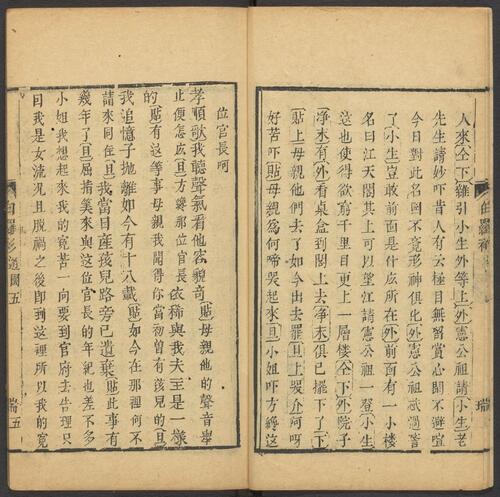 人來仝下雜引小生外等上外憲公祖請小生老
先生請妙吓昔人有云極目無留賞心閒不避喧
今日對此名園不竟形神俱化外憲公祖過
了小生豈敢前面是什庅所在外前面有一小樓
名曰江天閣其上可以望江請憲公祖一登小生
這也使得欲窮千里目更上一層樓仝下外院子
淨末有外看桌盒到閣上去淨末俱已擺下了下
貼上母親他們去了如今出去罷旦上介阿呀
好苦吓貼母親爲何啼哭起來旦小姐吓方纔這
白羅
瑞
位官長呵
孝順歌我聽聲氣看他容貌奇貼母親他的聲音舉
止便怎庅旦方纔那位官長依稀與我夫主是一樣
的貼有這等事母親我聞得你當初曾有孩兒的旦
我追憶子地離如今有十八載貼如今在那裡何不
請來同住旦我當日產孩兒路旁已遺棄貼此事有
幾年了旦屈指筭來與這位官長的年紀也差不多
小姐我想起來我的寃苦一向要到官府去告理只
因我是女流況且脫禍之後卽到這裡所以我的寃
白羅衫 遊園五
瑞五